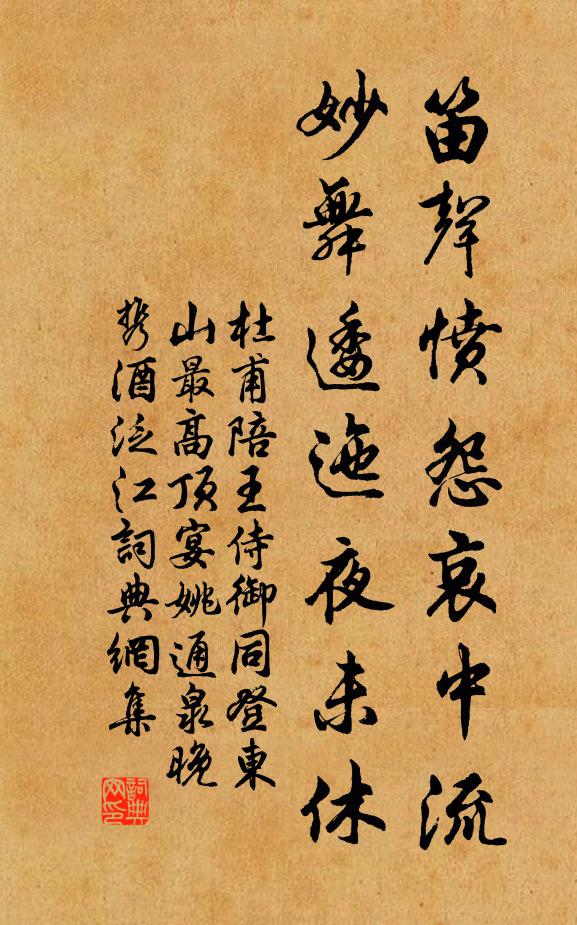 笛聲憤怨哀中流
妙舞逶迤夜未休
杜甫陪王侍御同登東
山最高頂宴姚通泉晚
携酒泛江詞典網集
詞典
网印